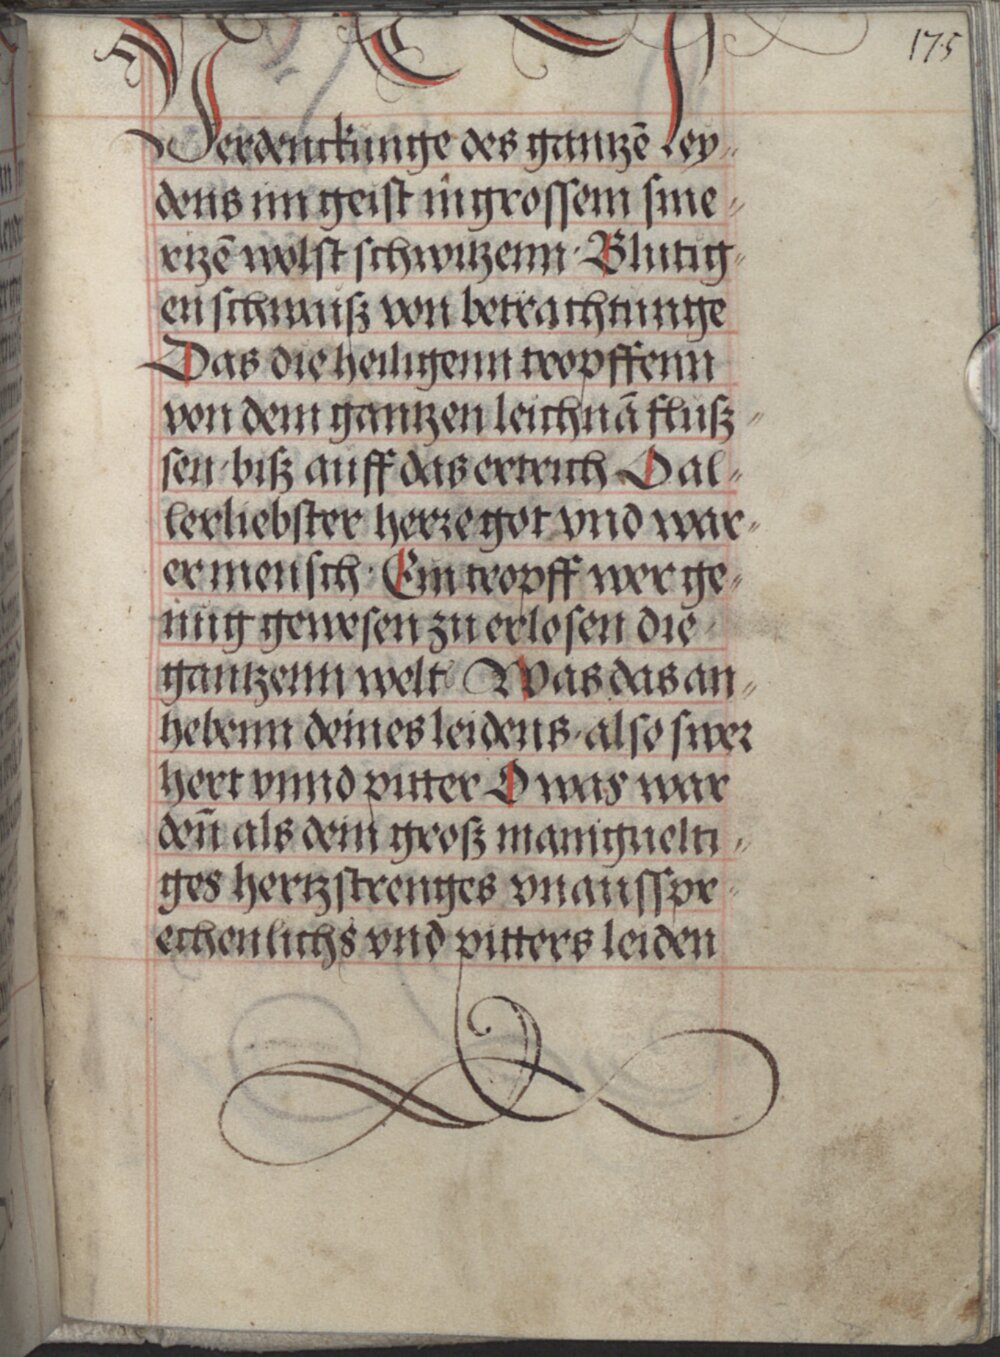 175
Verdenckunge des gantzē ley-
dens im geist in grossem sme-
rtzē wolst schwitzenn · Blutig-
en schwaisz von betrachtunge
Das die heiligenn tropffenn
von dem gantzen leichnā flusz-
sen · bisz auff das ertrich O al-
lerliebster herre got vnd war-
er mensch · Ein tropff wer ge-
nug gewesen zu erlosen die
gantzenn welt Was das an-
hebenn deines leidens · also swer
hert vnnd pitter O was war
den̄ als dein grosz maniguelti-
ges hertzstrenges vnausspr-
echenlichs vnd pitters leiden